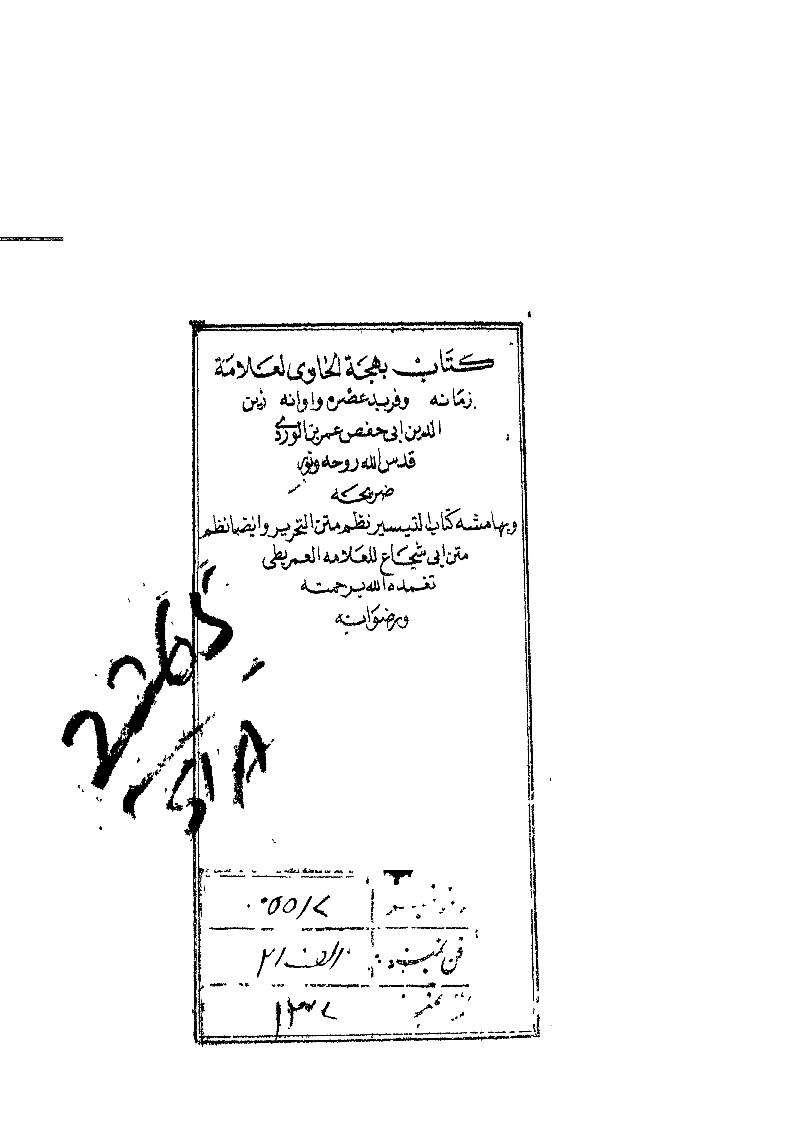 كتاب بهجة الحاوى لعلامة
زمانه وفريد عصره واوانه زين
الدين ابى حفص عمر بن الوردى
قدس الله روحه ونور
ضريحه
وبهامشه كتاب التيسير نظم متن التحرير وايضا نظم
متن ابى شجاع للعلامه العمريطى
تغمده الله برحمته
ورضوانه
2265
فن نمبر